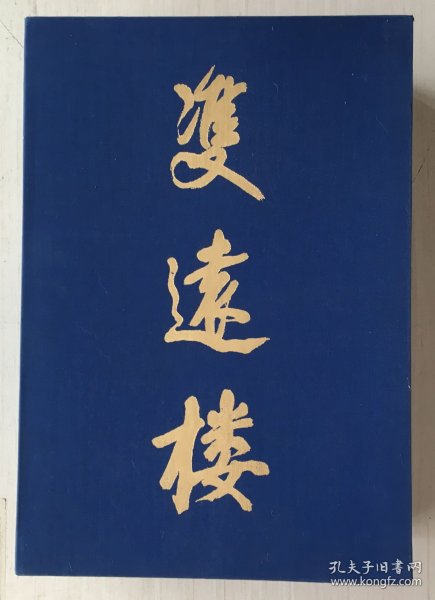 雙遠楼
孔夫子旧书网
www.kongfz.com